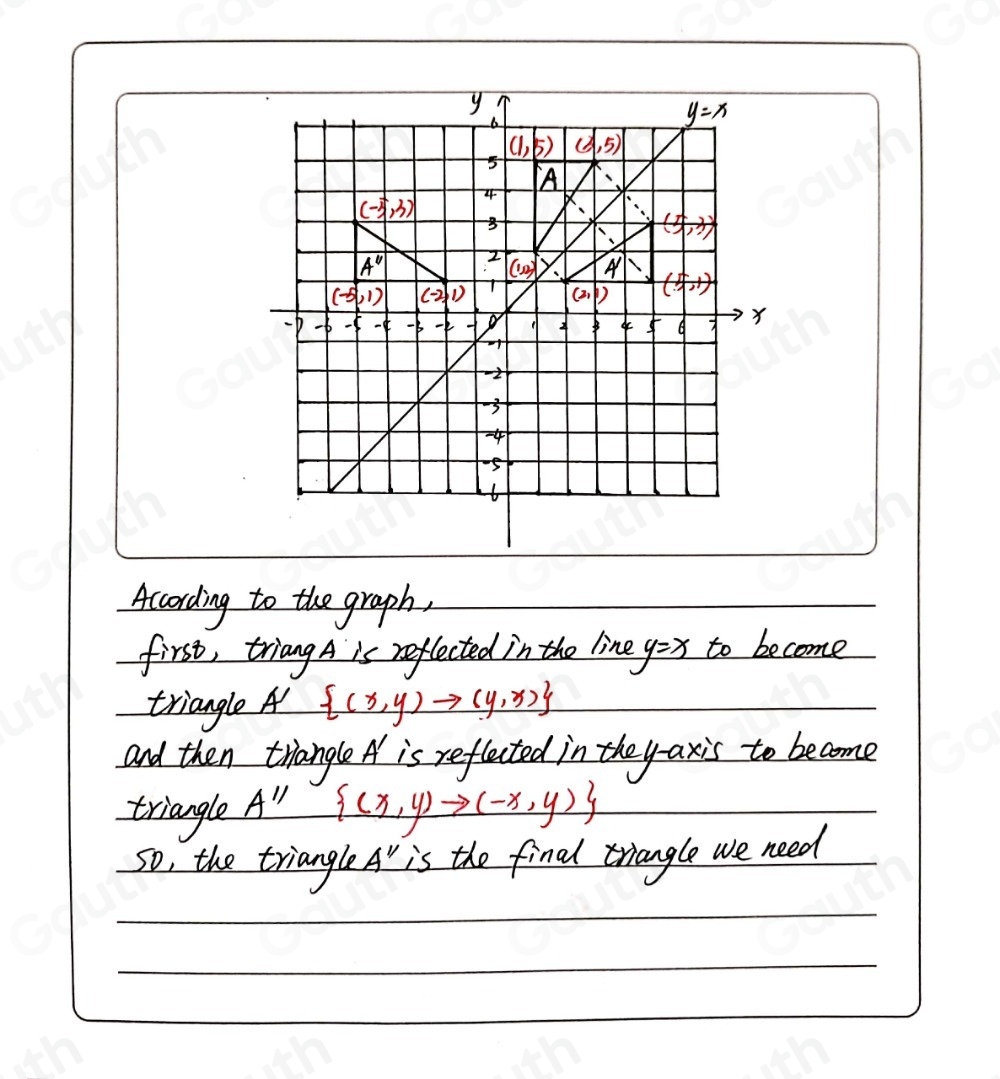 y
y=x
6
(1,5) (3,5)
5
A
4
(-5,3)
3
(5,3)
A"
2
(1,2)
A'
1
(-5,1) (-2,1) (2,1) (5,1)
-7 -6 -5 -4 -3 -2 -1 0 1 2 3 4 5 6 7 x
-1
-2
-3
-4
-5
-6
According to the graph,
first, triang A is reflected in the line y=x to become
triangle A' {(x,y)→(y,x)}
and then triangle A' is reflected in the y-axis to become
triangle A" {(x,y)→(-x,y)}
so, the triangle A" is the final triangle we need
Gauth